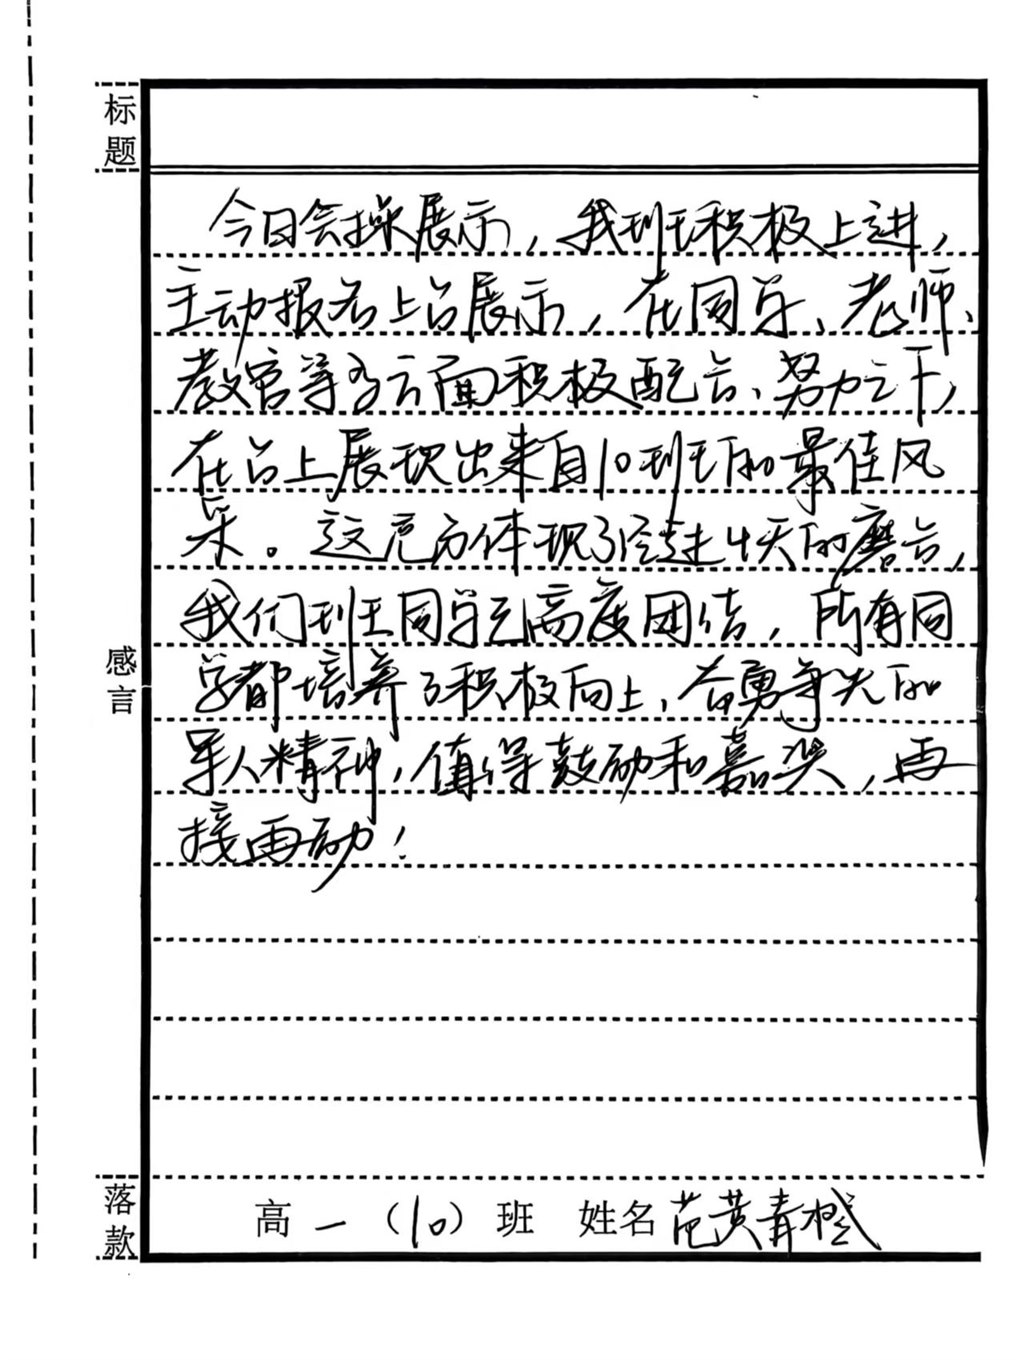 标题
今日会操展示，我班积极上进，
主动报名上台展示，在同学、老师、
教官等多方面积极配合、努力之下，
在台上展现出来自10班的最佳风
采。这充分体现了经过4天的磨合，
我们班同学已高度团结，所有同
学都培养了积极向上、奋勇争先的
军人精神，值得鼓励和嘉奖，再
接再励！
感言
落款
高一（10）班 姓名 范黄青樾